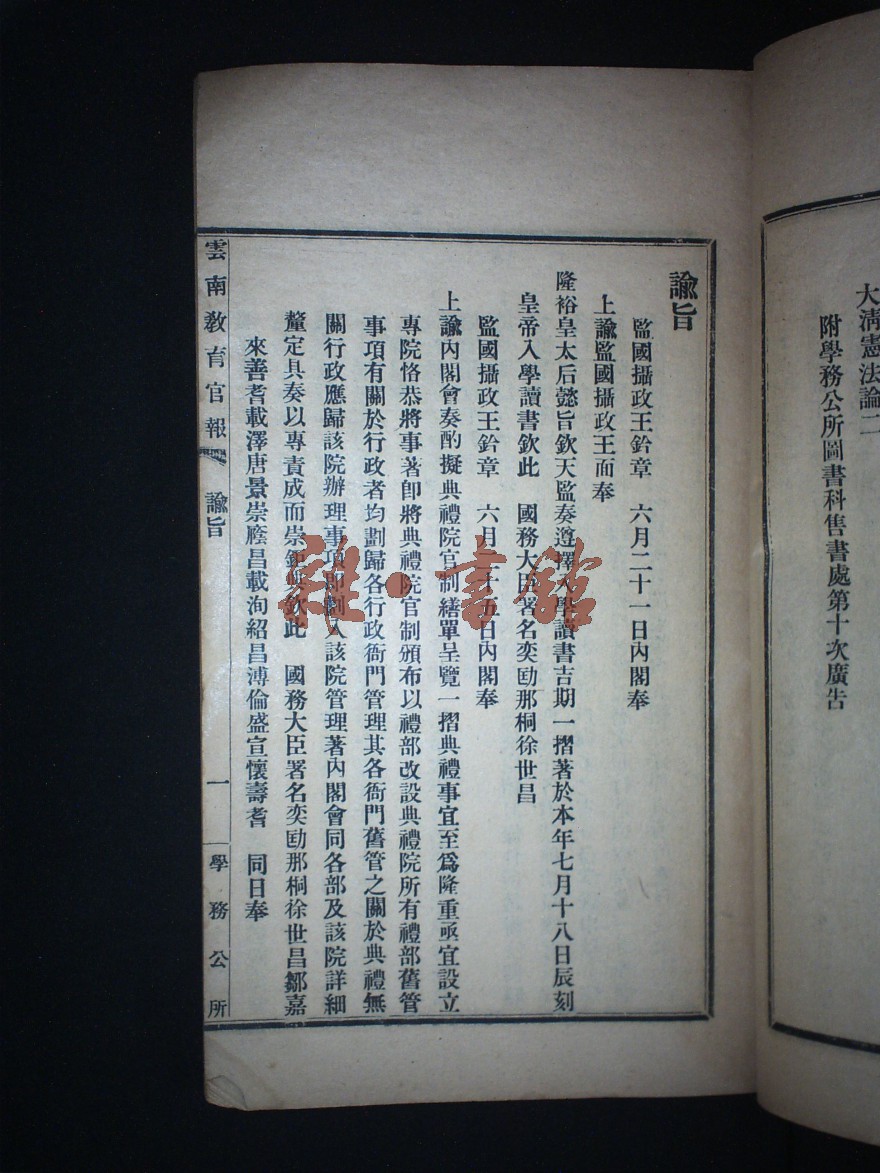 大清憲法論二
附學務公所圖書科售書處第十次廣告
諭旨
監國攝政王鈐章　六月二十一日內閣奉
上諭監國攝政王面奉
隆裕皇太后懿旨欽天監奏遵擇入學讀書吉期一摺著於本年七月十八日辰刻
皇帝入學讀書欽此　國務大臣署名奕劻那桐徐世昌
監國攝政王鈐章　六月二十五日內閣奉
上諭內閣會奏酌擬典禮院官制繕單呈覽一摺典禮事宜至爲隆重亟宜設立
專院恪恭將事著卽將典禮院官制頒布以禮部改設典禮院所有禮部舊管
事項有關於行政者均劃歸各行政衙門管理其各衙門舊管之關於典禮無
關行政應歸該院辦理事項卽劃入該院管理著內閣會同各部及該院詳細
釐定具奏以專責成而崇鉅典欽此　國務大臣署名奕劻那桐徐世昌鄒嘉
來善耆載澤唐景崇廕昌載洵紹昌溥倫盛宣懷壽耆　同日奉
雲南教育官報　諭旨　一　學務公所
雜·書館